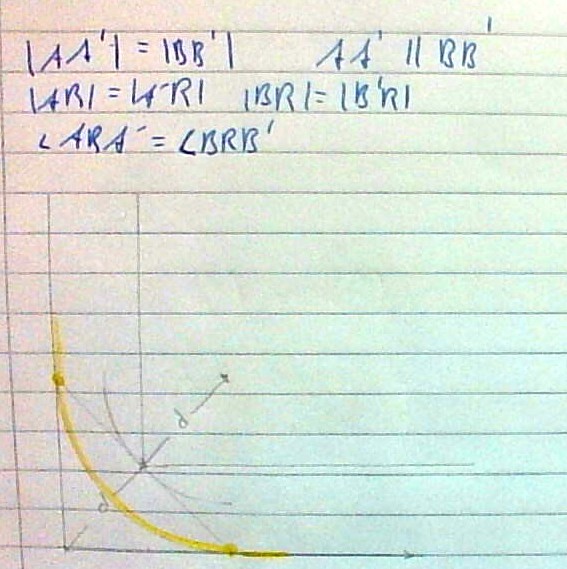 |AA'| = |BB'|    AA' || BB'
|AR| = |A'R|  |BR| = |B'R|
∠ARA' = ∠BRB'
d
d